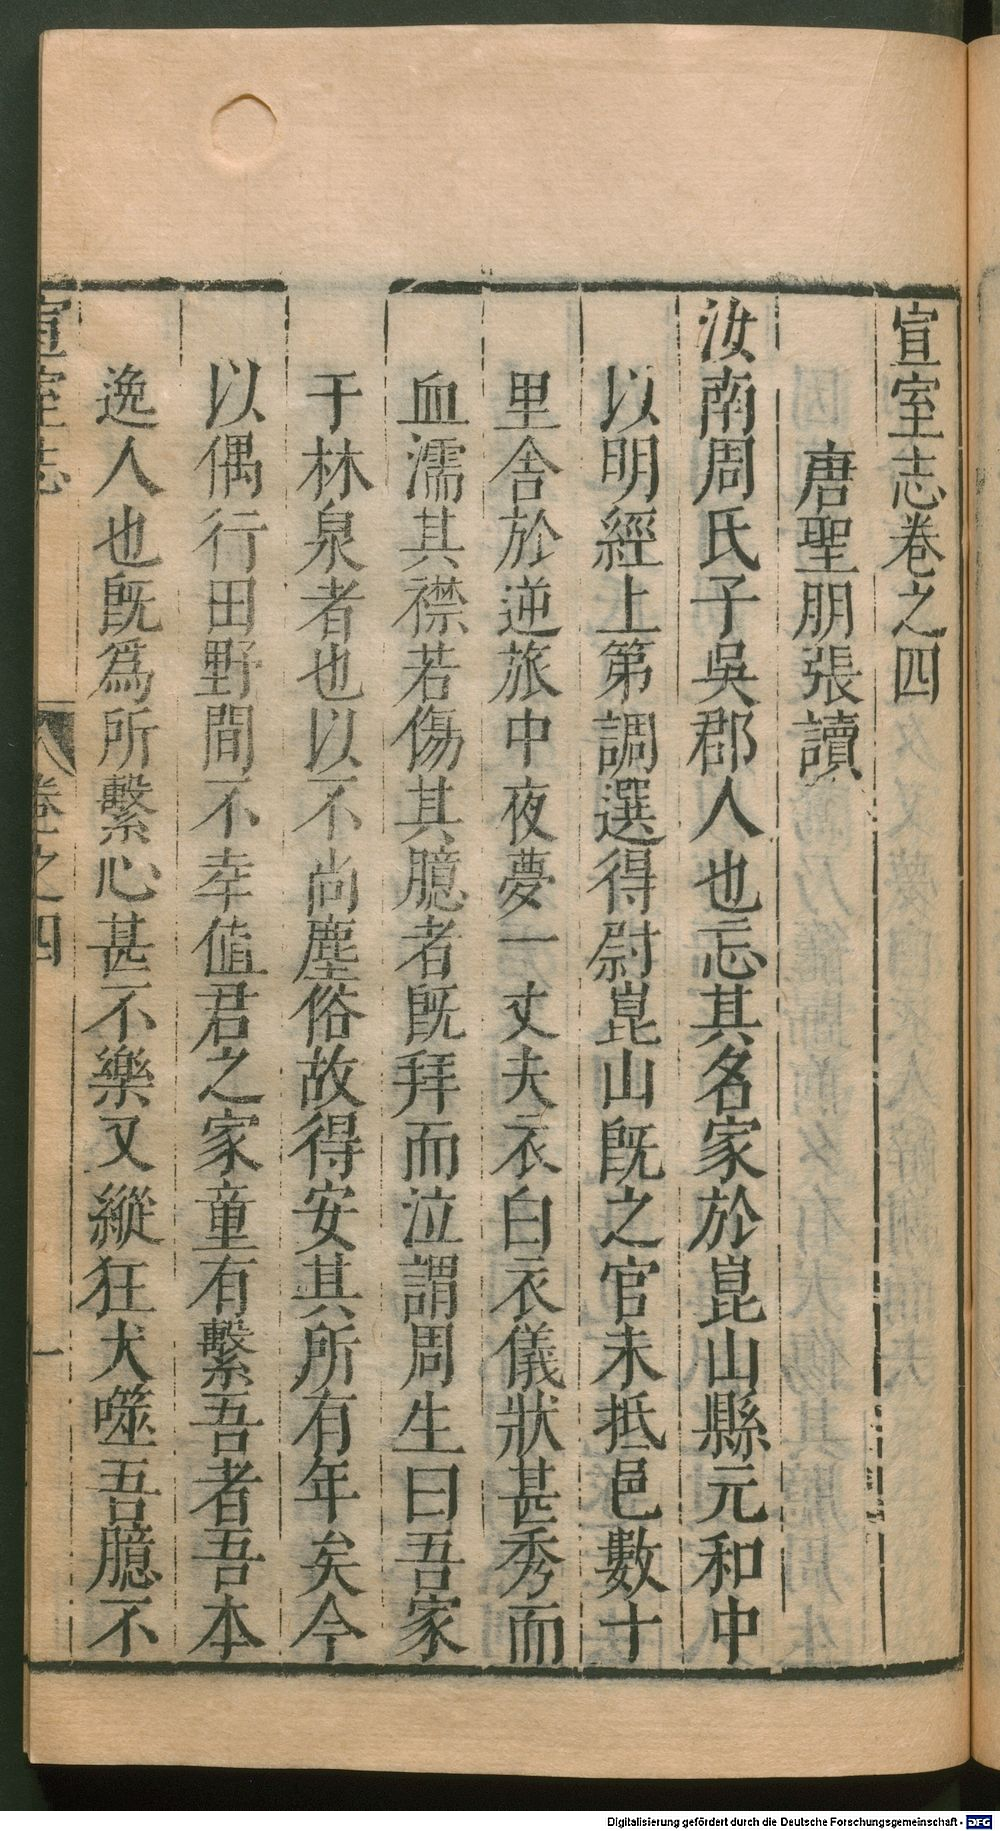 宣室志卷之四
唐聖朋張讀
汝南周氏子吳郡人也忘其名家於崑山縣元和中
以明經上第調選得尉崑山既之官未抵邑數十
里舍於逆旅中夜夢一丈夫衣白衣儀狀甚秀而
血濡其襟若傷其臆者既拜而泣謂周生曰吾家
于林泉者也以不尚塵俗故得安其所有年矣今
以偶行田野間不幸值君之家童有繫吾者吾本
逸人也既爲所繫心甚不樂又縱狂犬噬吾臆不
宣室志 卷之四 一
Digitalisierung gefördert durch die Deutsche Forschungsgemeinschaft - DFG